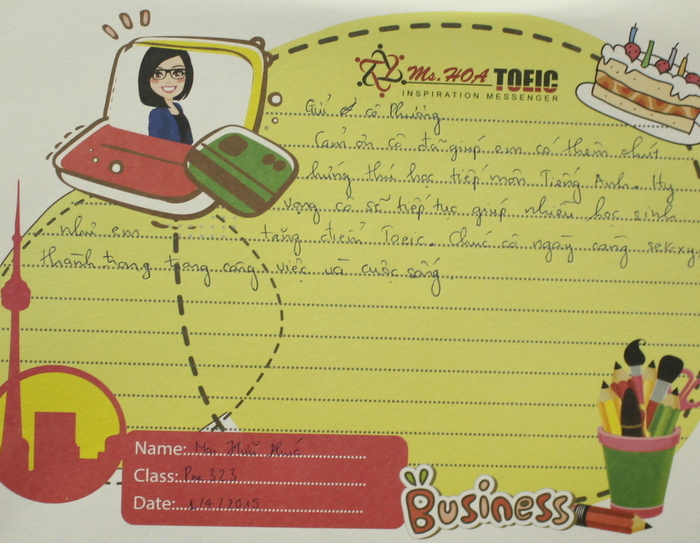 Ms. HOA TOEIC
INSPIRATION MESSENGER
Gửi cô Phương
Cảm ơn cô đã giúp em có thêm chút
hứng thú học tiếp môn Tiếng Anh. Hy
vọng cô sẽ tiếp tục giúp nhiều học sinh
như em tăng điểm Toeic. Chúc cô ngày càng sek.xy,
thành trong công việc và cuộc sống
Name: Mai
Class: Pre 323
Date: 1/4/2015
Business